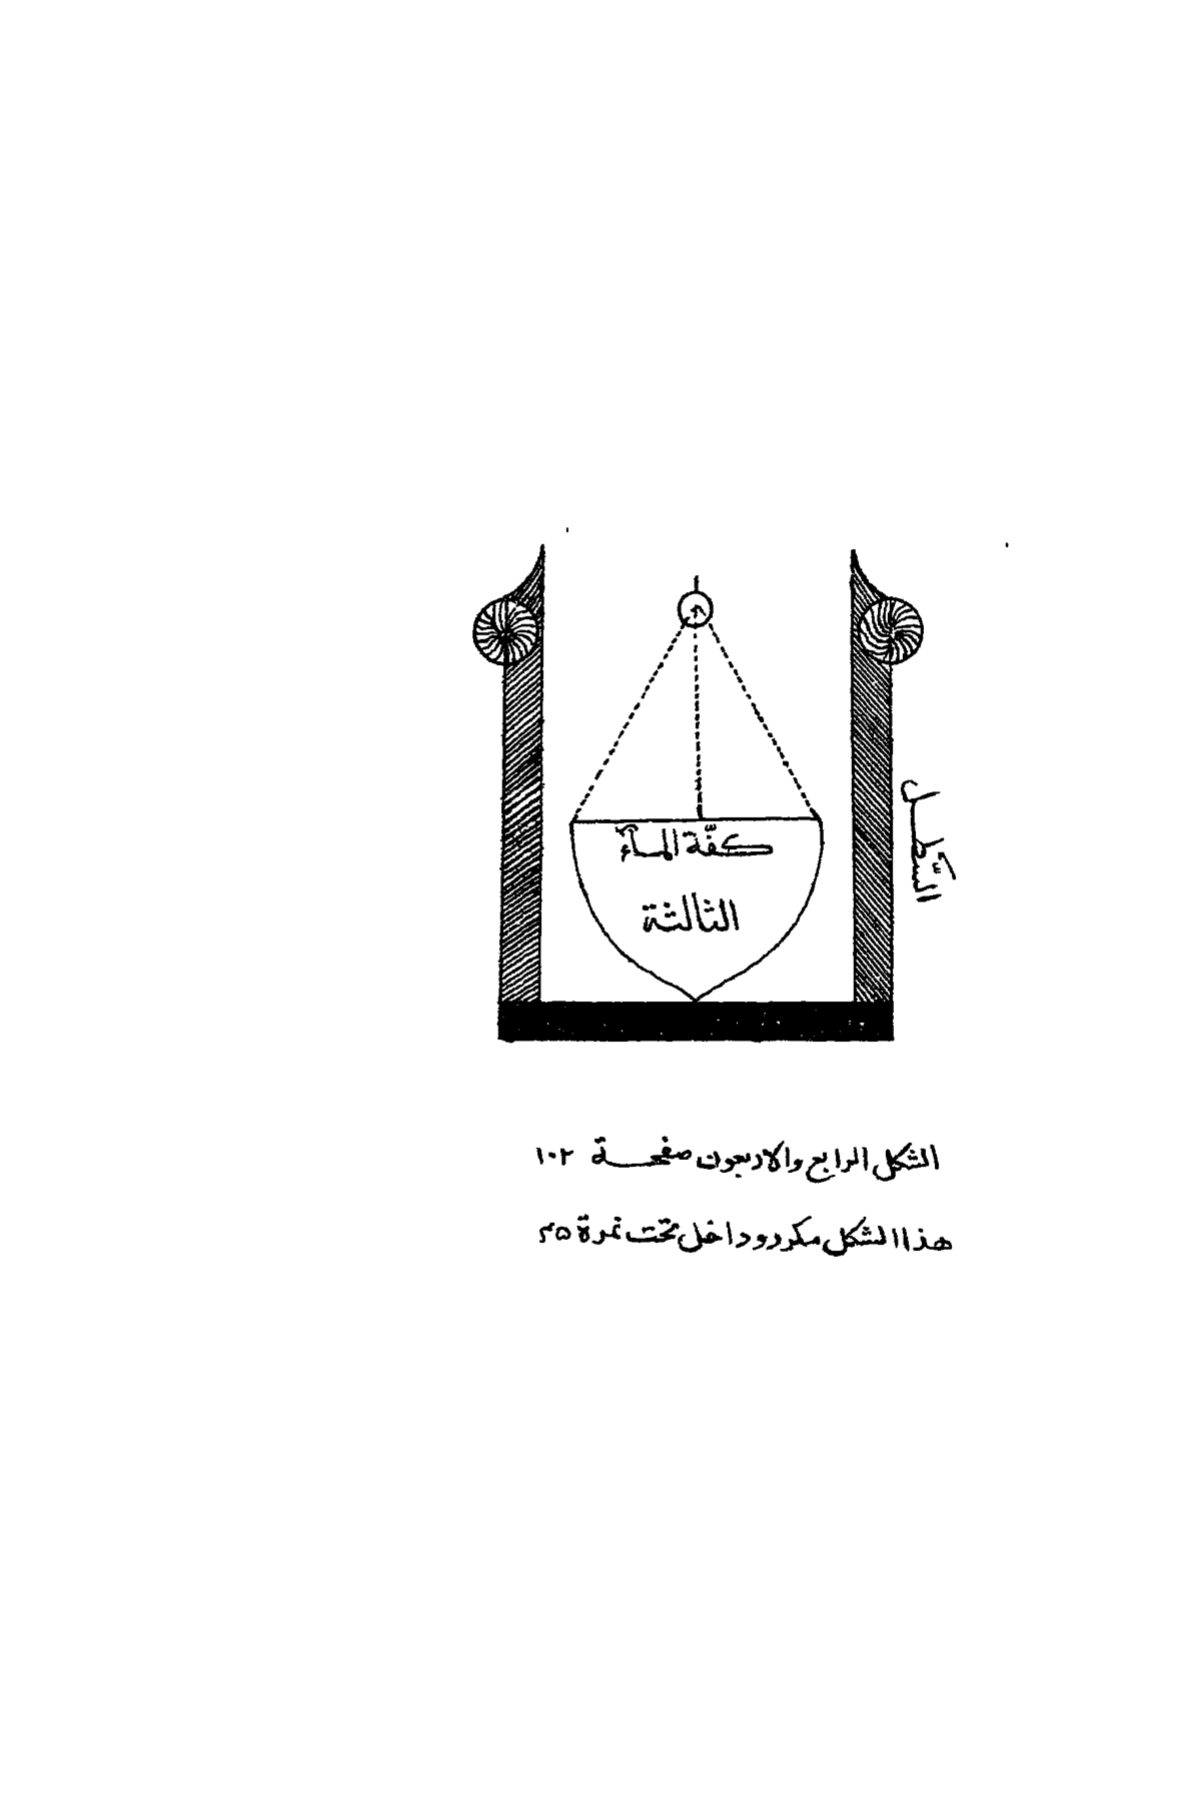 كفّة المآء
الثالثة
السَّطل
الشكل الرابع والاربعون صفحة ١٠٢
هذا الشكل مكرر وداخل تحت نمرة ٤٥